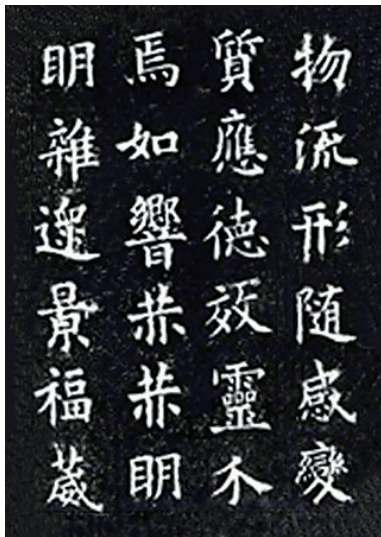 物流形随感變
質應德效靈介
焉如響赫赫眀
眀雜遝景福葳